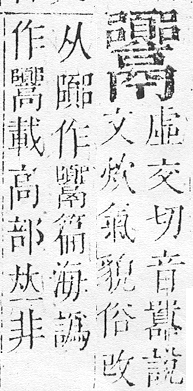 虛交切音囂說
文炊氣貌俗改
从作篇海譌
作載高部𠀤非